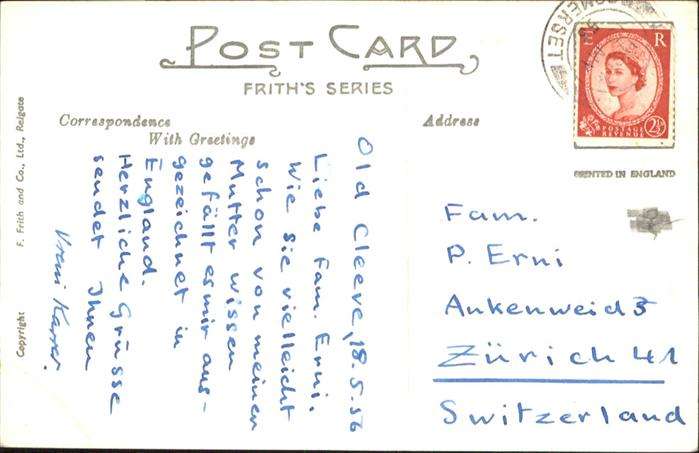 POST CARD
FRITH'S SERIES
Correspondence
With Greetings
Address
SOMERSET
E R
POSTAGE
REVENUE
2½
PRINTED IN ENGLAND
Old Cleeve, 18.5.56
Liebe Fam. Erni.
Wie Sie vielleicht
schon von meiner
Mutter wissen
gefällt es mir aus-
gezeichnet in
England.
Herzliche Grüsse
sendet Ihnen
Vreni Karrer.
Fam.
P. Erni
Ankenweid 3
Zürich 41
Switzerland
Copyright F. Frith and Co., Ltd., Reigate